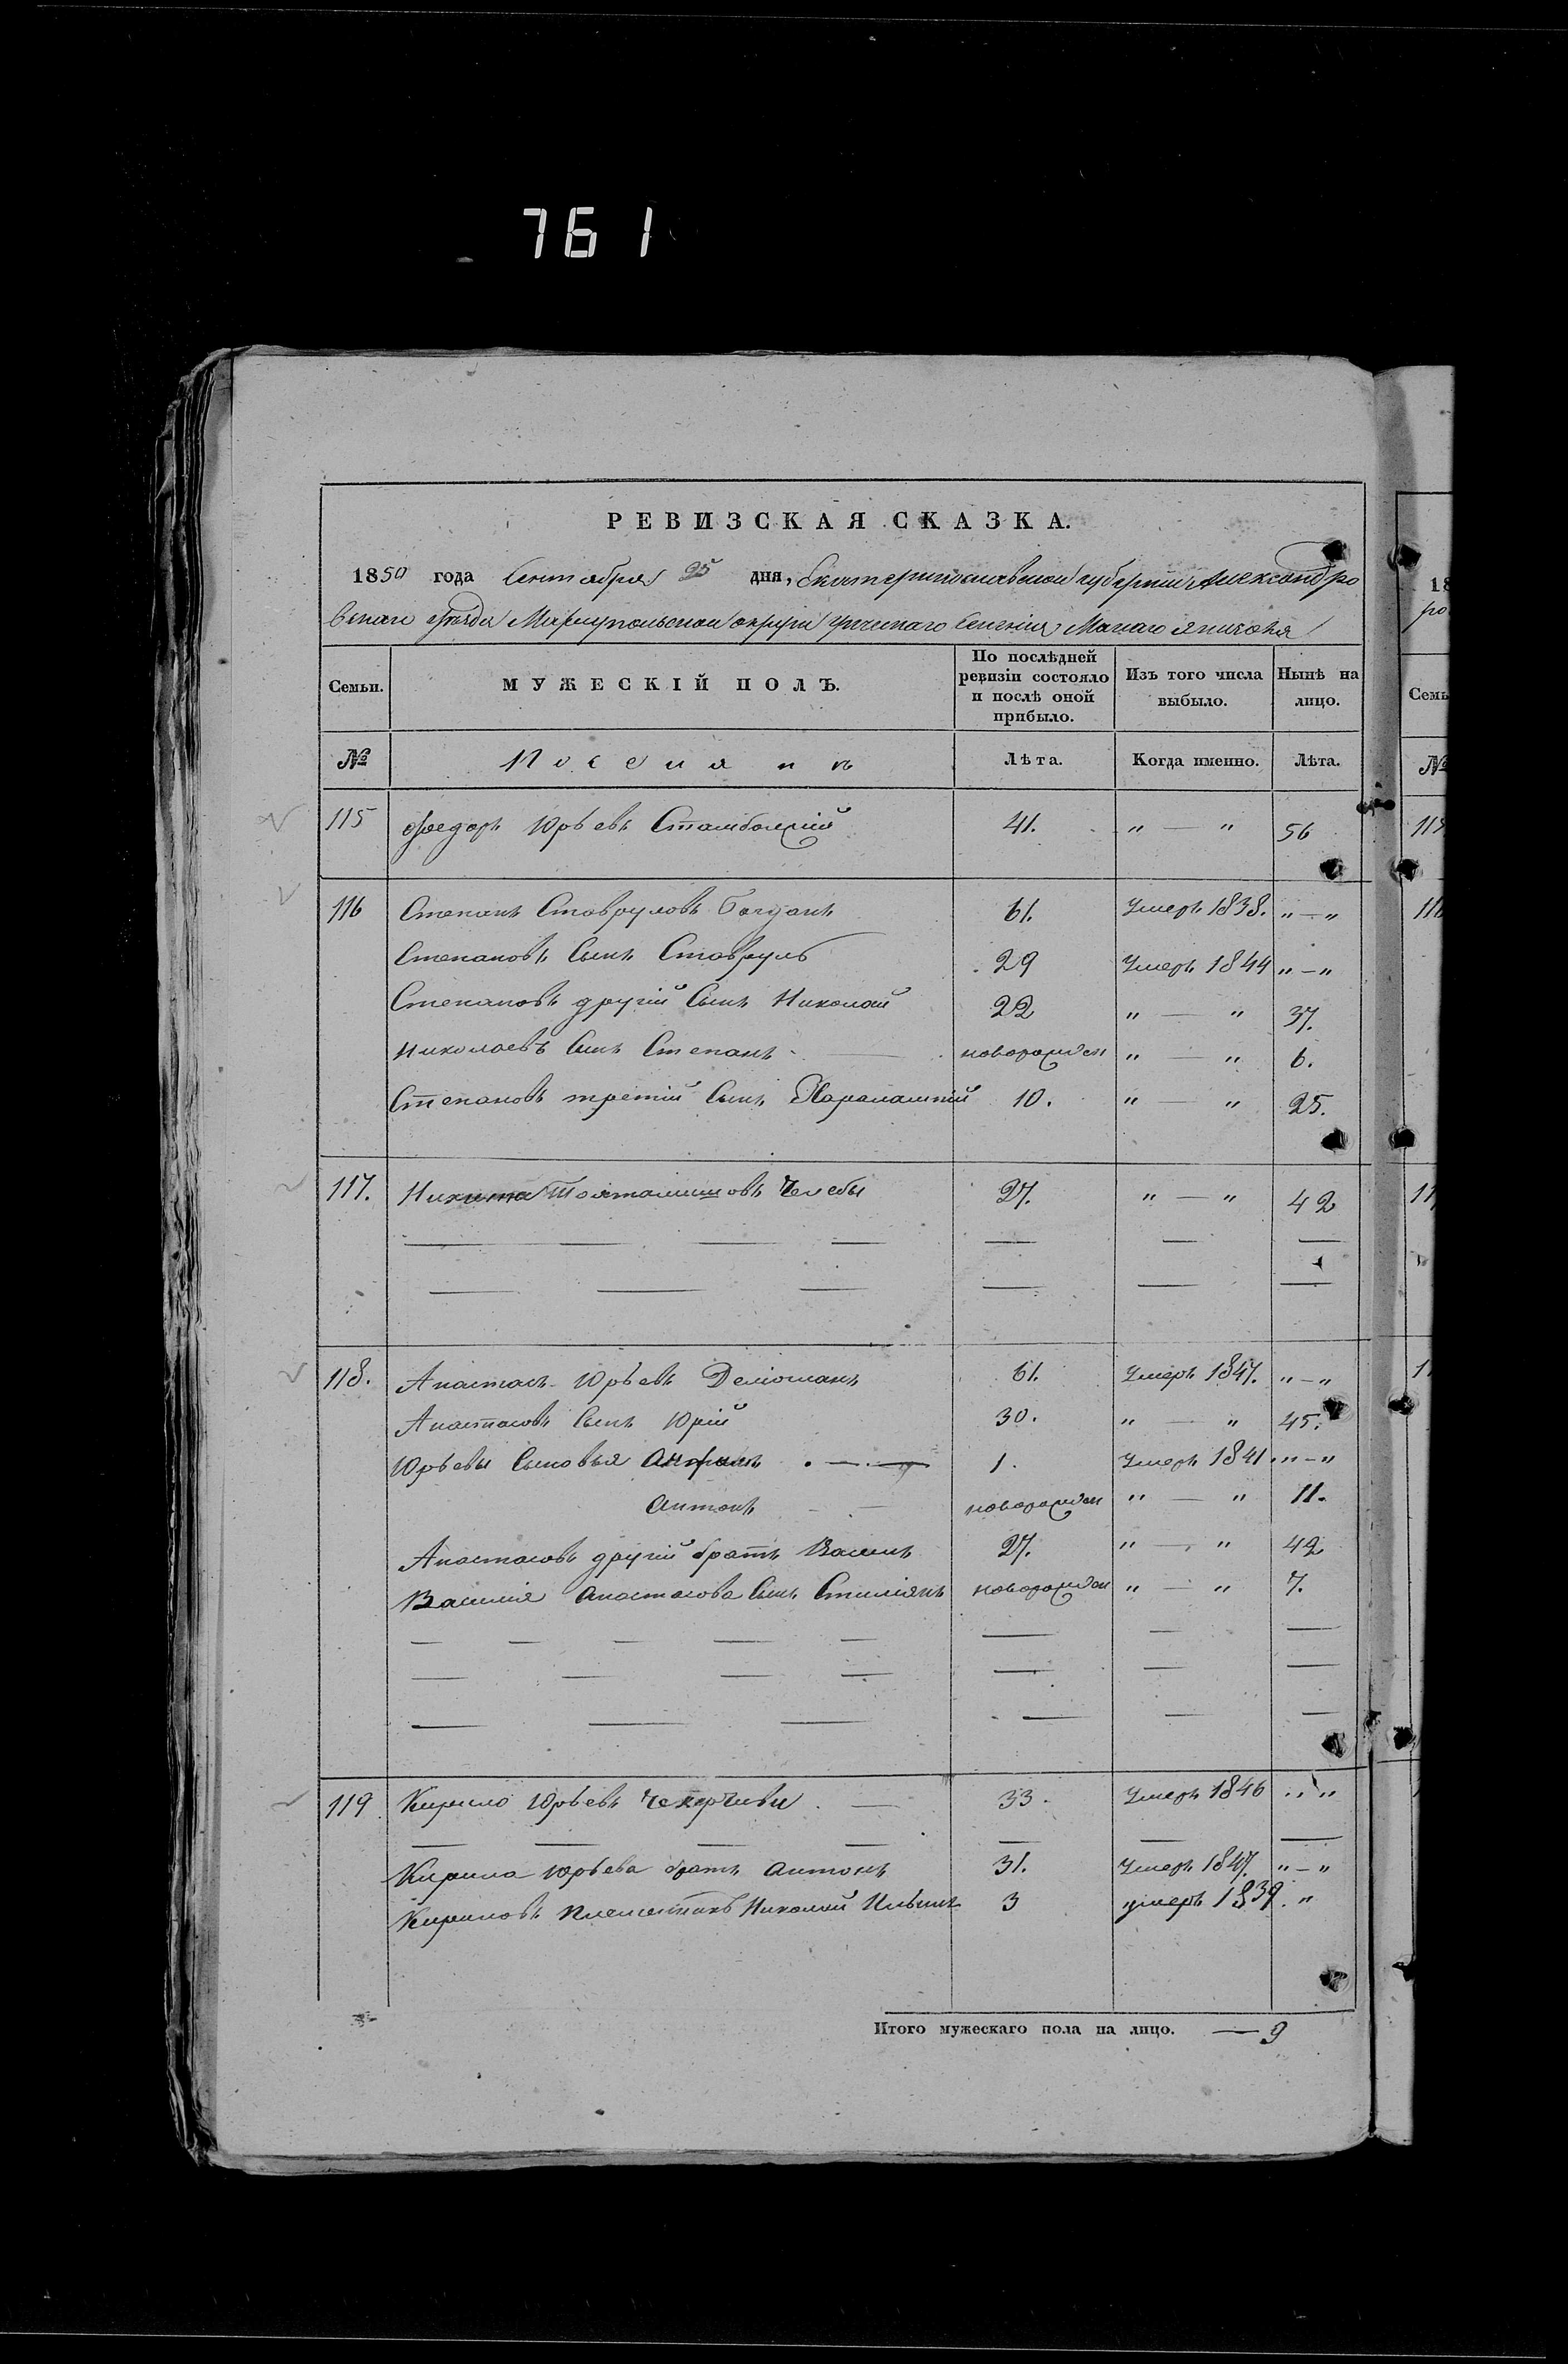 761
РЕВИЗСКАЯ СКАЗКА.
1850 года Сентября 25 дня, Екатеринославской губернии Александро
вскаго уѣзда Мариупольскаго округа греческаго Селенія Малаго Янисоля
Семьи. МУЖЕСКІЙ ПОЛЪ. По послѣдней ревизіи состояло и послѣ оной прибыло. Изъ того числа выбыло. Нынѣ на лицо.
№ Поселянъ Лѣта. Когда именно. Лѣта.
115 Ѳедоръ Юрьевъ Стамболжій 41. " — " 56
116 Степанъ Ставруловъ 61. Умеръ 1838. " — "
Степановъ Сынъ Ставрулъ 29 Умеръ 1844 " — "
Степановъ другій Сынъ Николай 22 " — " 37.
Николаевъ Сынъ Степанъ — новорожден " — " 6.
Степановъ третій Сынъ Харалампій 10. " — " 25.
117. Никита Челебы 27. " — " 42
118. Анастасъ Юрьевъ 61. Умеръ 1847. " — "
Анастасовъ Сынъ Юрій 30. " — " 45.
Юрьевы Сыновья — 1. Умеръ 1841 " — "
Антонъ — новорожден " — " 11.
Анастасовъ другій братъ Василь 27. " — " 42
Василія Анастасова Сынъ Стиліянъ новорожден " — " 7.
119 Кирило Юрьевъ — 33. Умеръ 1846 " "
Кирила Юрьева братъ Антонъ 31. Умеръ 1847. " — "
Кириловъ племянникъ Николай Ильинъ 3 умеръ 1839. "
Итого мужескаго пола на лицо. — 9
18
ро
Семь
№
115
116
11
1